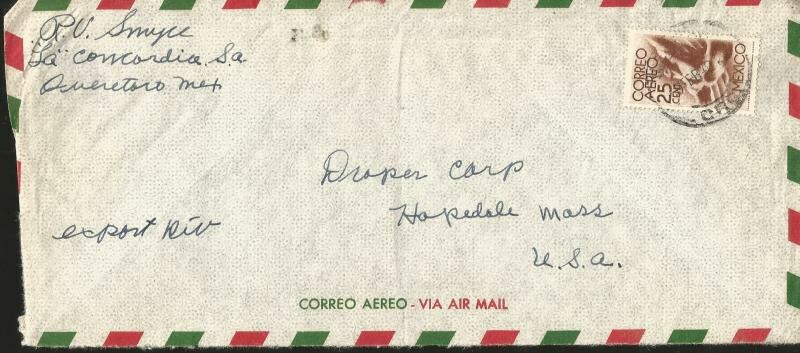 R.V. Smyce
"La" Concordia S.a
Queretoro Mex
CORREO
AEREO
25
CENT
MEXICO
Draper Corp
Hopedale Mass
U.S.a.
export Div
CORREO AEREO - VIA AIR MAIL